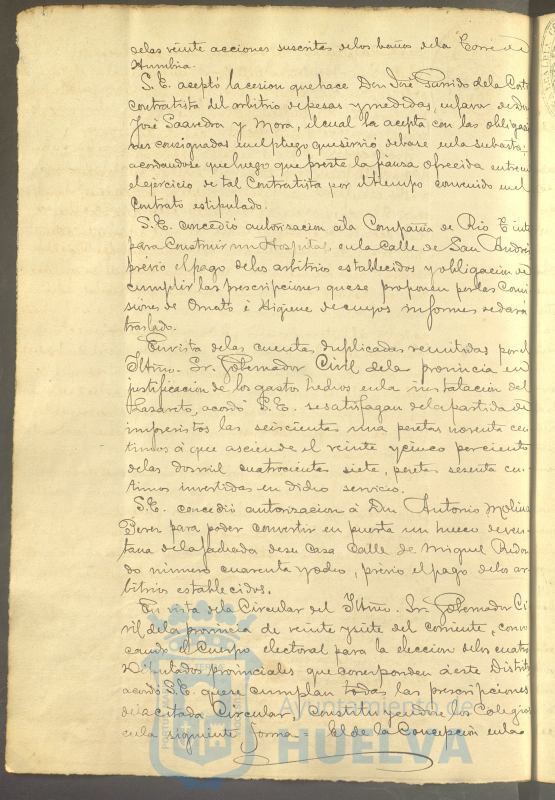 delas veinte acciones suscritas delos baños dela Torre de
Humbria.
S. E. aceptó la cesion que hace Don José Garrido dela Corte
contratista del arbitrio de pesas y medidas, en favor de don
José Saavedra y Mora, el cual la acepta con las obligacio
nes consignadas en el pliego que sirvió de base en la subasta;
acordandose que luego que preste la fianza ofrecida entre en
el ejercicio de tal Contratista por el tiempo convenido en el
contrato estipulado.
S. E. concedió autorizacion á la Compañia de Rio Tinto
para construir un Hospital, en la Calle de San Andrés
prévio el pago delos arbitrios establecidos y obligacion de
cumplir las prescripciones que se proponen por las Comi
siones de Ornato é Higiene de cuyos informes se dará
traslado.
En vista delas cuentas duplicadas remitidas por el
Iltmo. Sr. Gobernador Civil dela provincia en
justificacion de los gastos hechos en la instalación del
Lazareto, acordó S. E. se satisfagan dela partida de
imprevistos las seiscientas una pesetas noventa cen
timos á que asciende el veinte y cinco por ciento
delas dos mil cuatrocientas siete, pesetas sesenta cen
timos invertidas en dicho servicio.
S. E. concedió autorizacion á Don Antonio Molina
Perez para poder convertir en puerta un hueco de ven
tana dela fachada de su Casa Calle de Miguel Redon
do número cuarenta y ocho, prévio el pago delos ar
bitrios establecidos.
En vista dela Circular del Iltmo. Sr. Gobernador Ci
vil dela provincia de veinte y siete del corriente, convo
cando el Cuerpo electoral para la eleccion delos cuatro
Diputados provinciales que corresponden á este Distrito
acordó S. E. que se cumplan todas las prescripciones
dela citada Circular, constituyendose los Colegios
en la siguiente forma = El de la Concepción en la
Ayuntamiento de
HUELVA